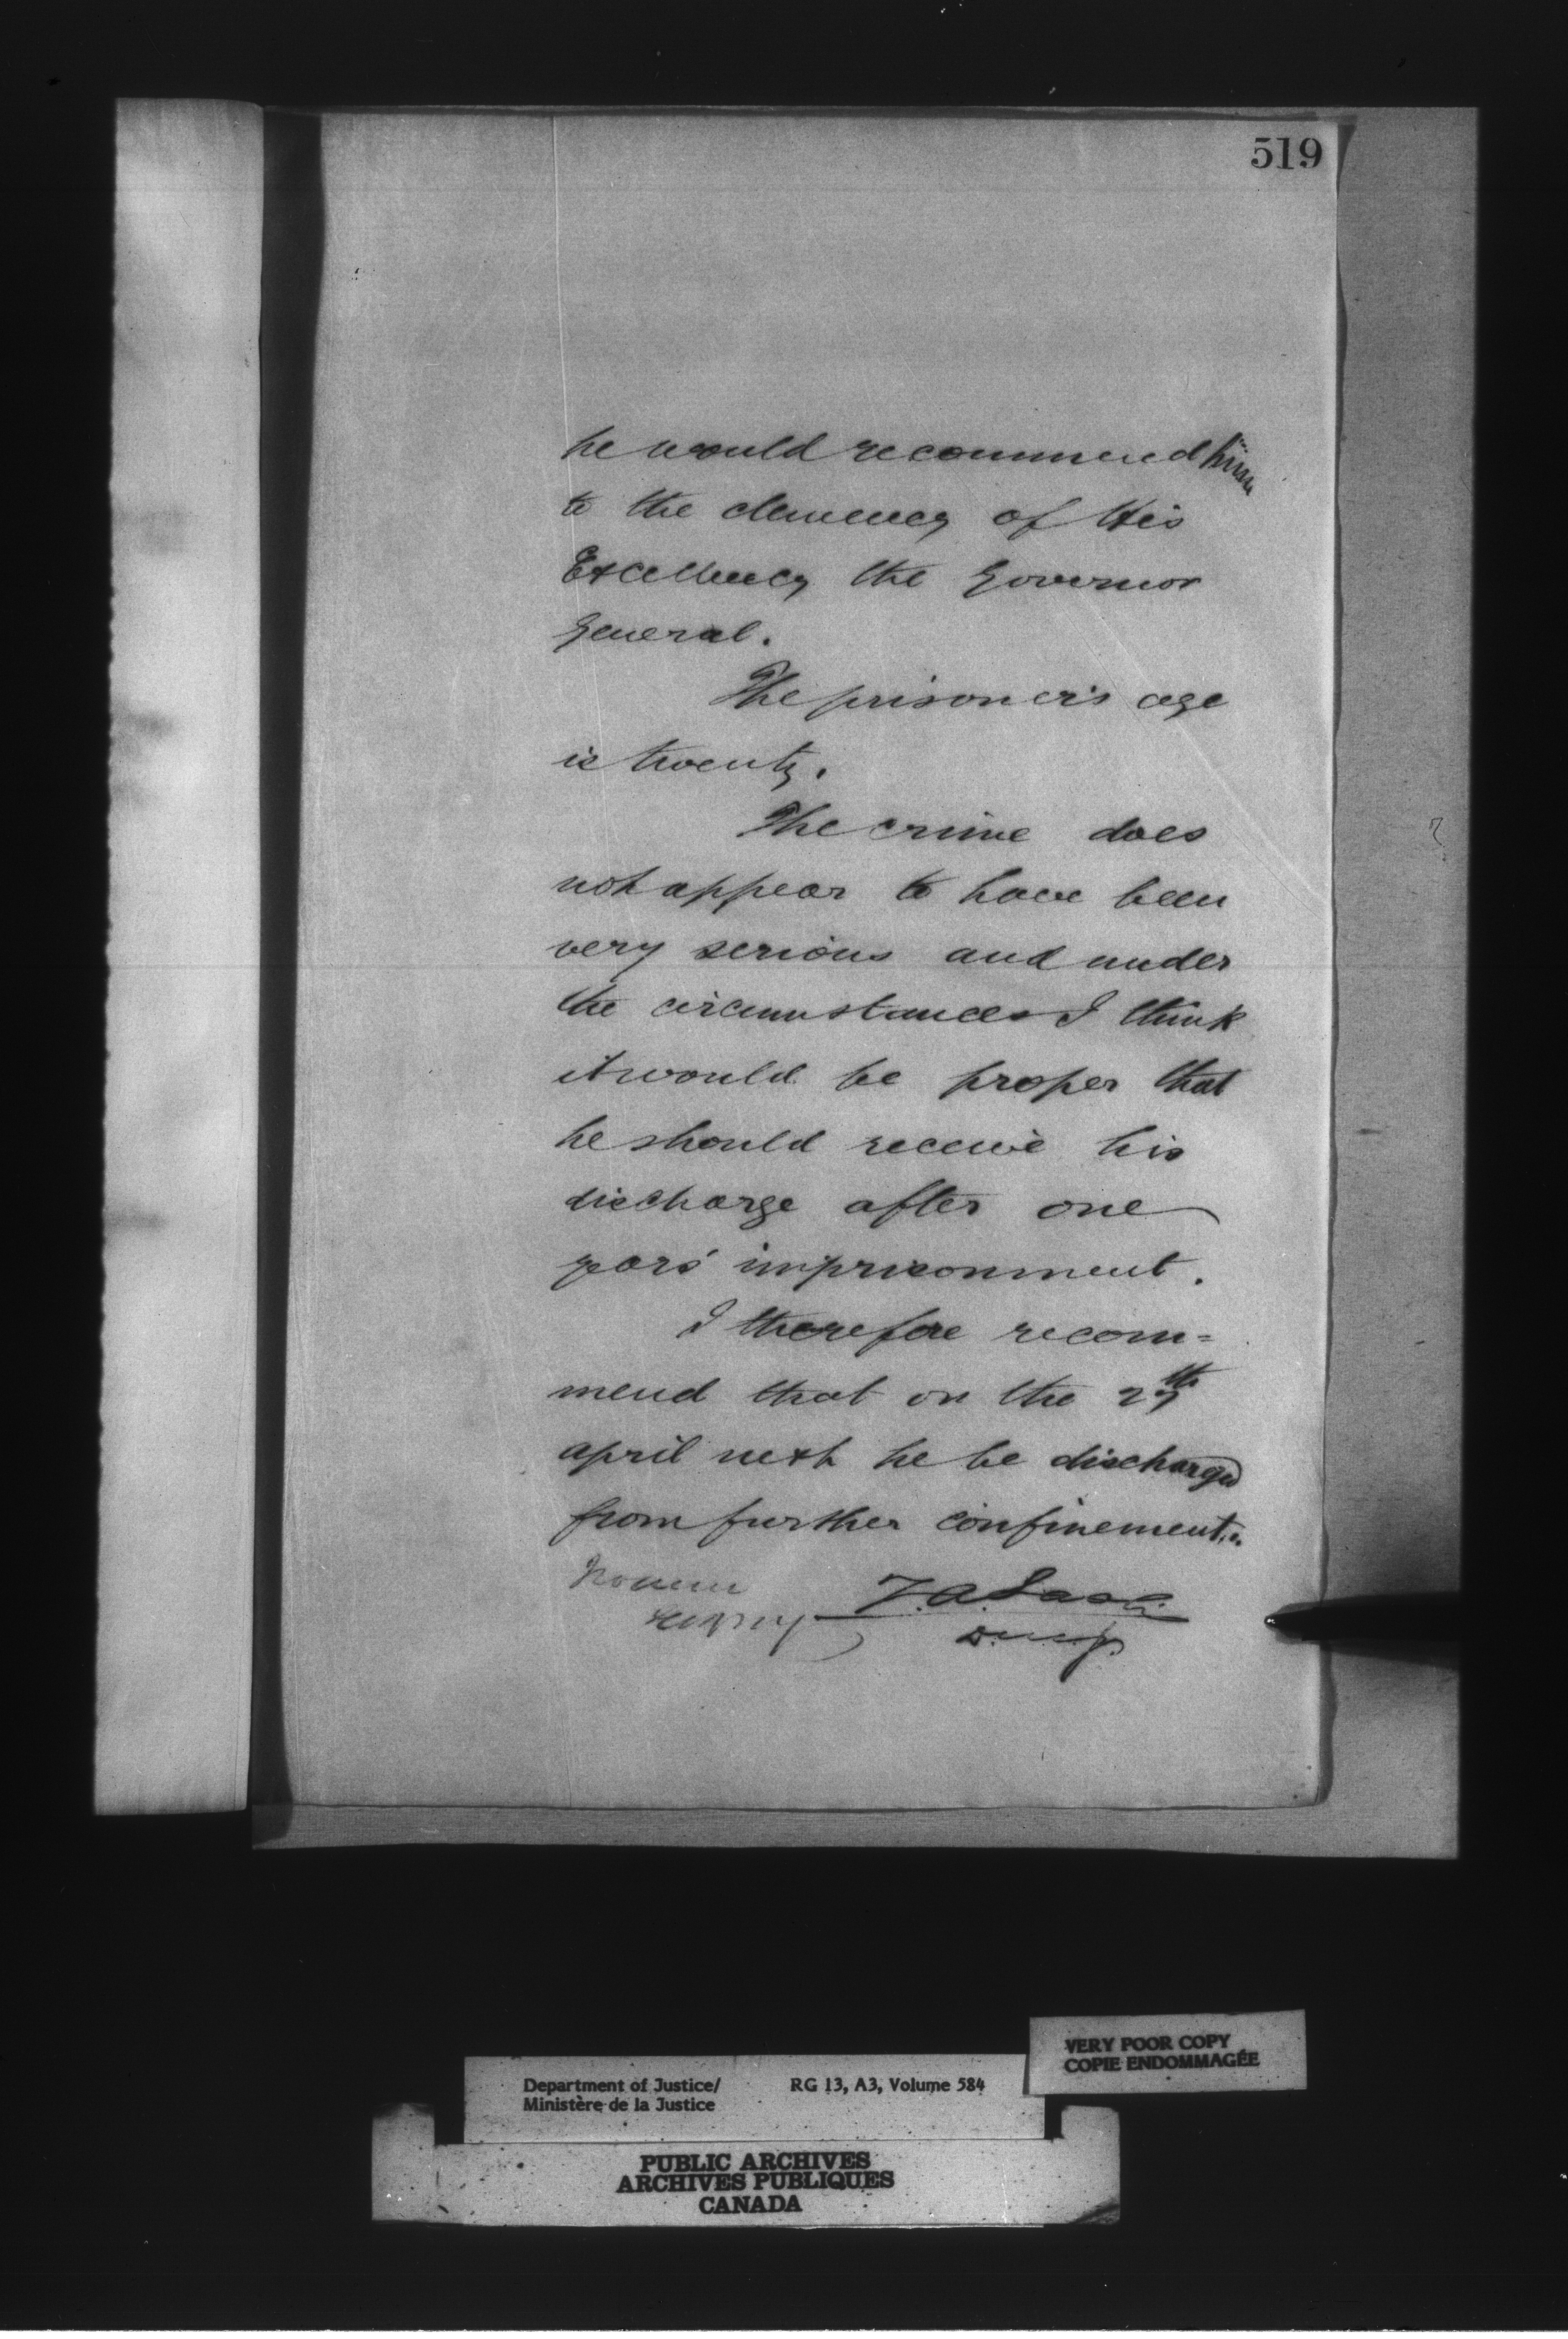 519
he would recommend him
to the clemency of His
Excellency the Governor
General.
The prisoner's age
is twenty.
The crime does
not appear to have been
very serious and under
the circumstances I think
it would be proper that
he should receive his
discharge after one
years' imprisonment.
I therefore recom=
mend that on the 27th
april next he be discharged
from further confinement.
Z.A. Lash
D.M.J.
VERY POOR COPY
COPIE ENDOMMAGÉE
Department of Justice/ RG 13, A3, Volume 584
Ministère de la Justice
PUBLIC ARCHIVES
ARCHIVES PUBLIQUES
CANADA